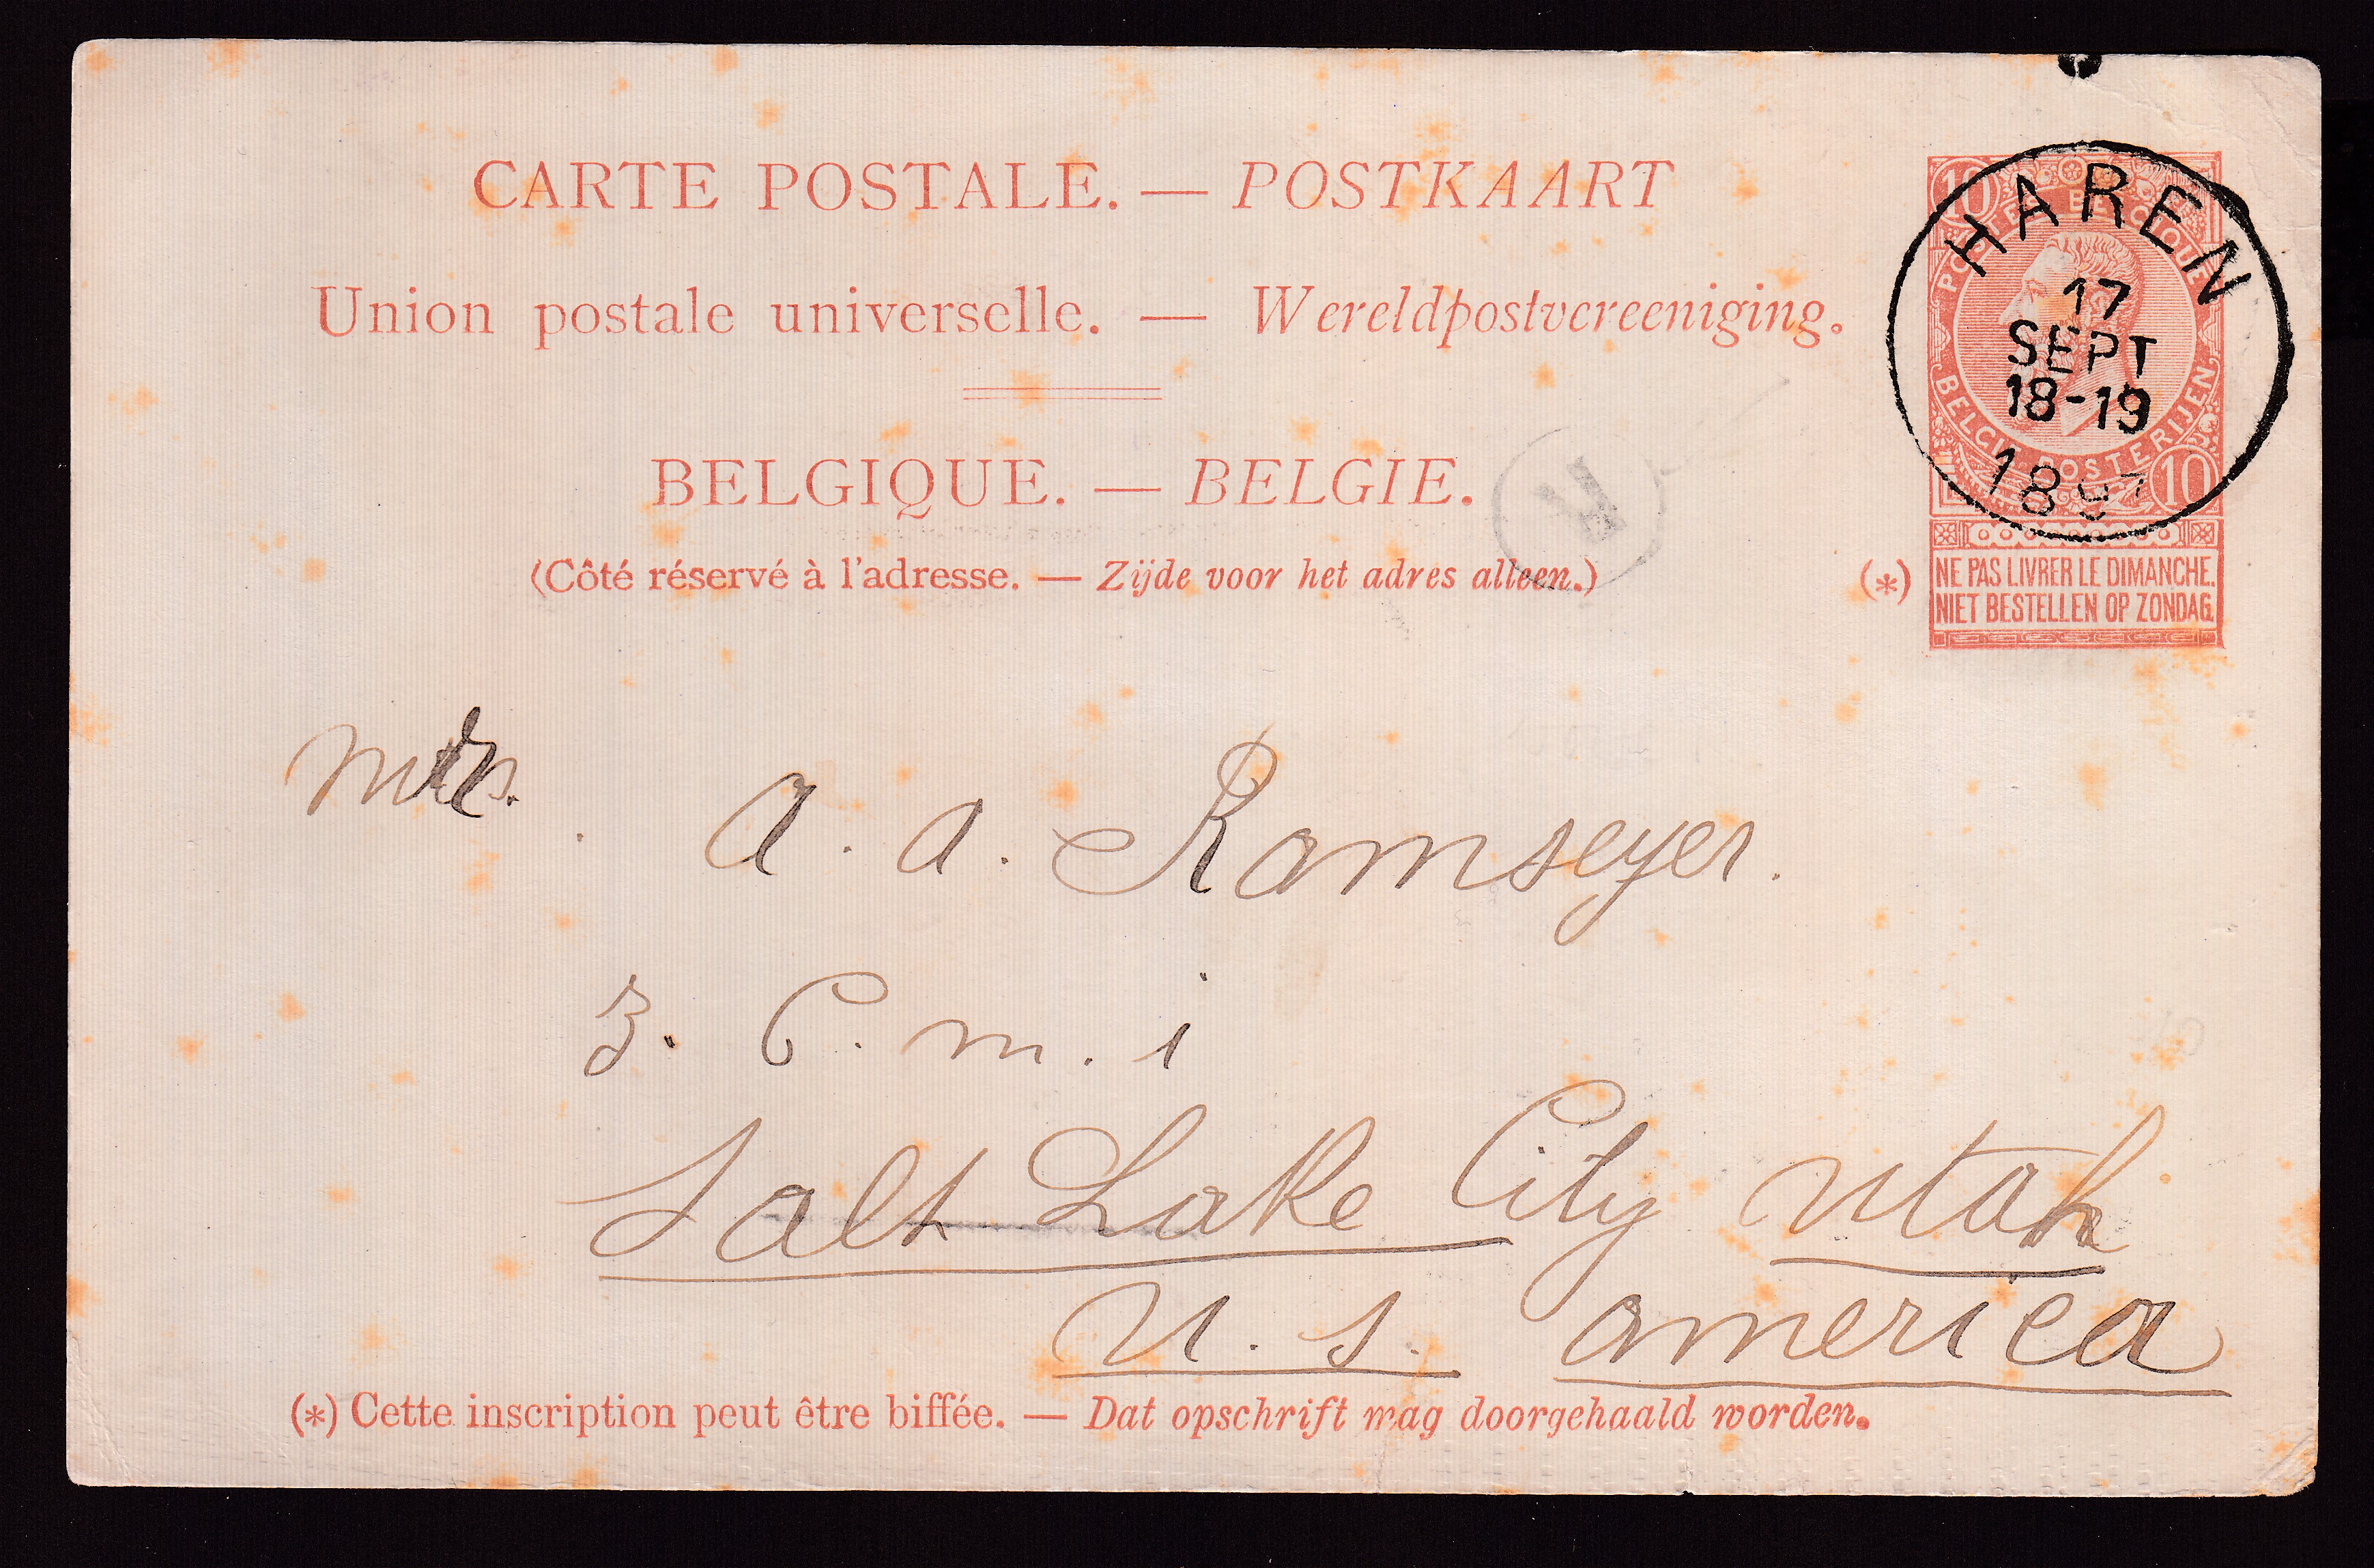 CARTE POSTALE. — POSTKAART
Union postale universelle. — Wereldpostvereeniging.
BELGIQUE. — BELGIE.
(Côté réservé à l'adresse. — Zijde voor het adres alleen.)
10
POSTES BELGIQUE
BELGIË POSTERIJEN
10
(*) NE PAS LIVRER LE DIMANCHE.
NIET BESTELLEN OP ZONDAG.
HAREN
17
SEPT
18-19
1897
R
Mrs.
A. A. Ramseyer.
Z. C. M. I
Salt Lake City Utah
U. S. America
(*) Cette inscription peut être biffée. — Dat opschrift mag doorgehaald worden.